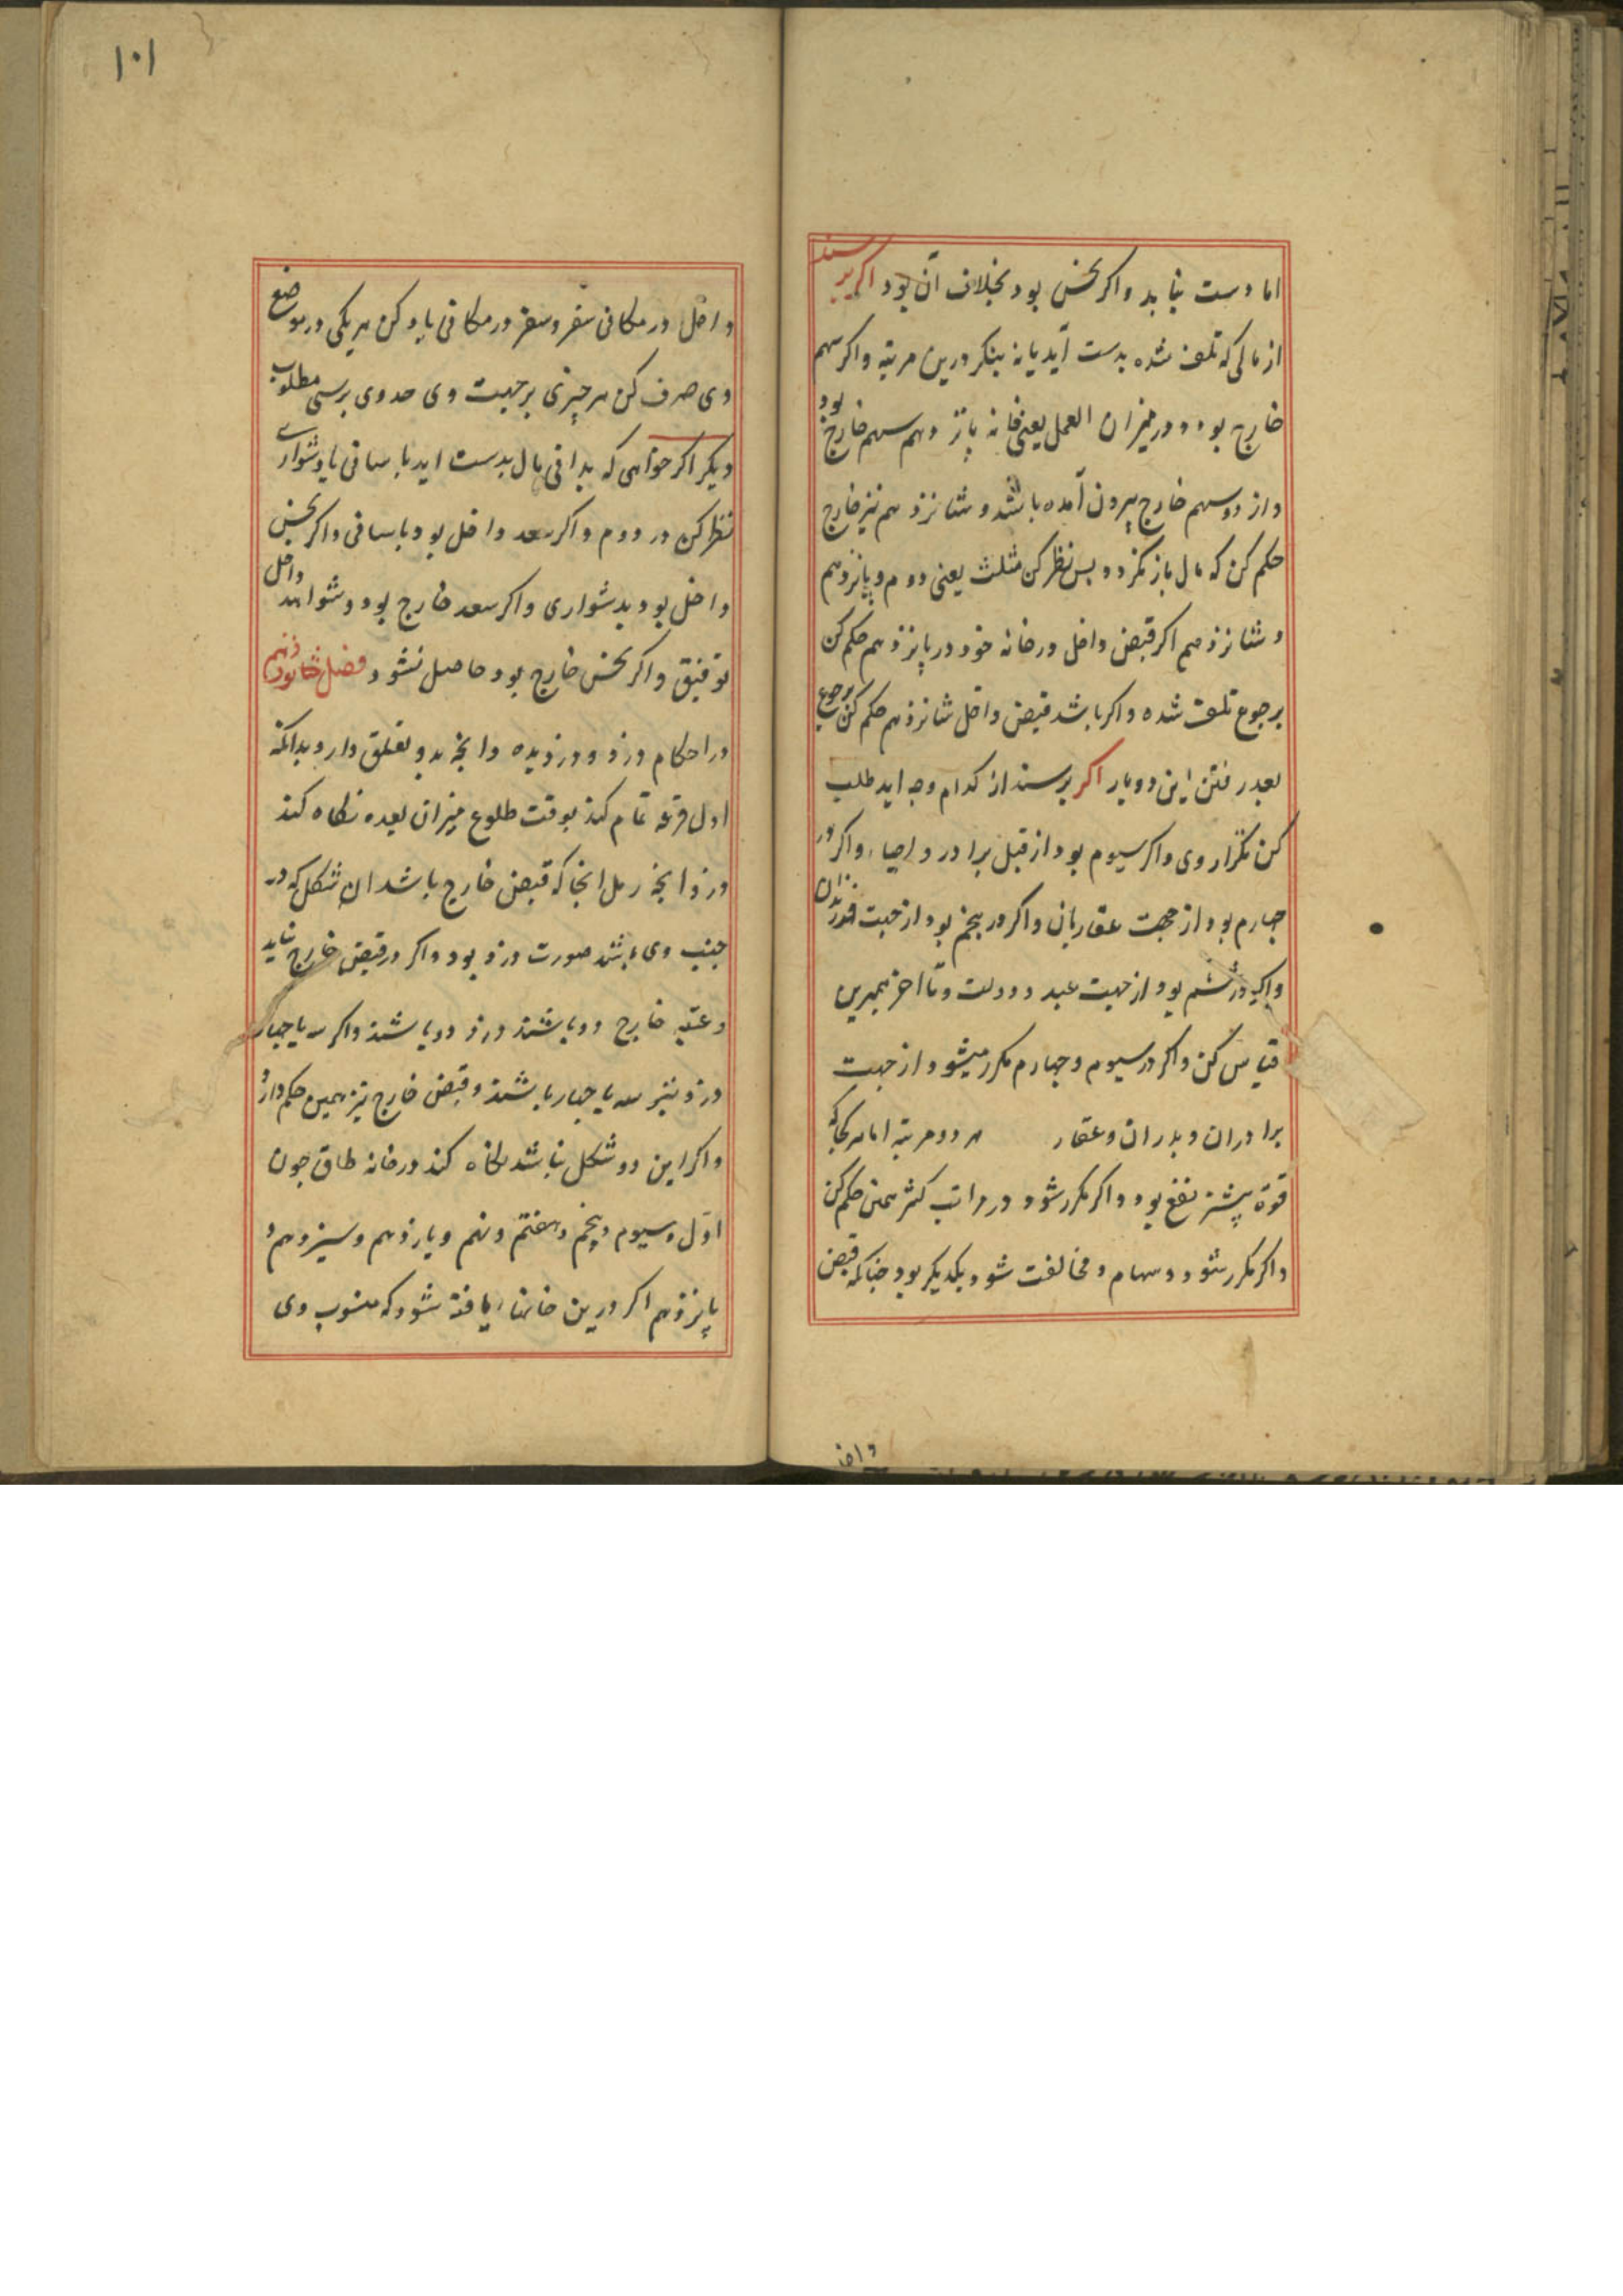 اما دست نیابد واکر نحس بود بخلاف آن بود اکر پرسند
از مالی که تلف شده بدست آید یا نه بنکر درین مرتبه واکر سهم
خارج بود و در میزان العمل یعنی خانه پانزدهم سهم خارج بود
واز دو سهم خارج بیرون آمده باشد و شانزدهم نیز خارج
حکم کن که مال باز نکردد پس نظر کن مثلث یعنی دوم و پانزدهم
و شانزدهم اکر قبض داخل در خانه خود در پانزدهم حکم کن
برجوع تلف شده واکر باشد قبض داخل شانزدهم حکم کن برجوع
بعد رفتن این دو بار اکر پرسند از کدام وجه اید طلب
کن تکرار وی واکر سیوم بود از قبل برادر و احبا واکر در
چهارم بود از جهت عقاریان واکر در پنجم بود از جهت فرزندان
واکر در ششم بود از جهت عبد و دولت وتا اخر بهمرین
قیاس کن واکر در سیوم و چهارم مکرر میشود از جهت
برادران و پدران وعقار هر دو مرتبه اما هر کجا که
قوة بیشتر نفع بود واکر مکرر شود در مراتب کثر همین حکم کن
واکر مکرر شود دو سهام و مخالفت شود بیکدیکر بود چنانکه قبض
داخل
١٠١
داخل در مکانی سفر و سفر در مکانی یاد کن هر یکی در موضع
وی صرف کن هر چیزی بر جهت وی حدوی برسی مطلوب
دیکر اکر خواهی که بدانی مال بدست اید باسانی یا دشواری
نظر کن در دوم واکر سعد داخل بود باسانی واکر نحس
داخل بود بدشواری واکر سعد خارج بود و شواهد داخل
توفیق واکر نحس خارج بود حاصل نشود فصل شانزدهم
در احکام دزد و دزدیده وانچه بدو تعلق دارد بدانکه
اول قرعه تمام کند بوقت طلوع میزان بعده نکاه کند
در زایچه رمل انجا که قبض خارج باشد ان شکل که در
جنب وی باشد صورت دزد بود واکر در قبض خارج نیاید
وعتبه خارج دو باشند دزد دو باشند واکر سه یا چهار
دزد نیز سه یا چهار باشند وقبض خارج نیز همین حکم دارد
واکر این دو شکل نباشد نکاه کند در خانه طاق چون
اول و سیوم و پنجم و هفتم و نهم و یازدهم و سیزدهم و
پانزدهم اکر درین خانها یافته شود که منسوب وی